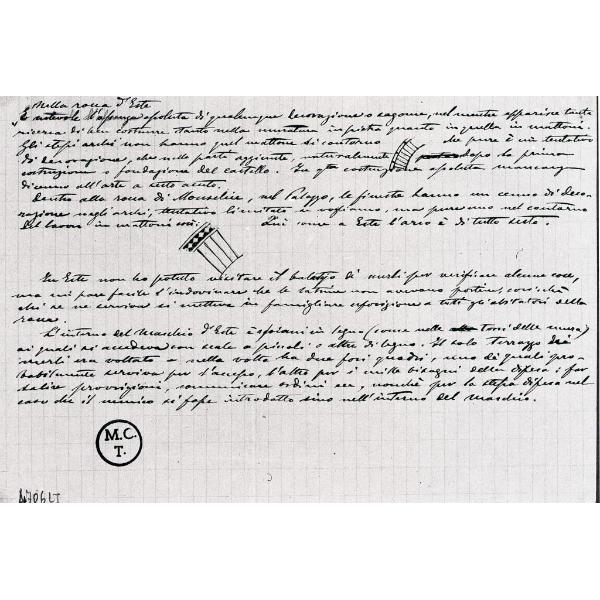 Nella rocca d'Este
È notevole l'assenza assoluta di qualunque decorazione o sagome, nel mentre apparisce tanta
ricerca di ben costruire, tanto nella muratura in pietra quanto in quella in mattoni.
Gli stessi archi non hanno quel mattone di contorno che pure è un tentativo
di decorazione, che nella parte aggiunta, naturalmente dopo la prima
costruzione o fondazione del castello. In costruzione assoluta mancanza
all'arte a sesto acuto.
Dentro alla rocca di Monselice, nel Palazzo, le finestre hanno un cenno di deco-
razione negli archi, tentativo limitato se vogliamo, ma pure uno nel contorno
del lavoro in mattoni così. Qui come a Este l'arco è di tutto sesto.
In Este non ho potuto visitare il di merli per verificare alcune cose,
ma mi pare facile l'indovinare che le non avevano, così chè
chi se ne serviva si metteva in famigliare esposizione a tutti gli abitatori della
rocca.
L'interno del Maschio d'Este è a solai in legno (come nelle torri delle mura)
ai quali si accedeva con scale a piuoli o altre di legno. Il solo terrazzo dei
merli era voltato e nella volta ha due fori quadri, uno dei quali pro-
babilmente serviva per l'accesso, l'altro per i misti bisogni della difesa: far
salire provvigioni, comunicare ordini ecc, nonchè per la stessa difesa nel
caso che il nemico si fosse introdotto sino nell'interno del maschio.
M.C.
T.